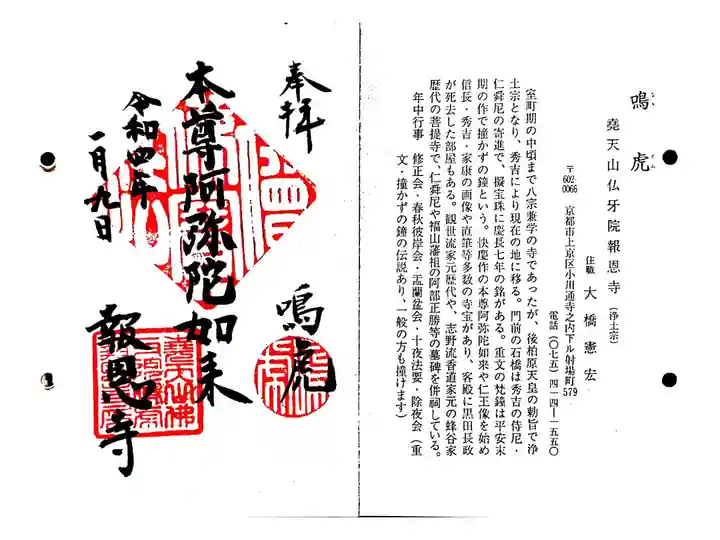 鳴虎
なき とら
堯天山仏牙院報恩寺(浄土宗)
住職 大橋憲宏
〒602-0066 京都市上京区小川通寺之内下ル射場町579
電話(〇七五)四一四ー一五五〇
室町期の中頃まで八宗兼学の寺であったが、後柏原天皇の勅旨で浄
土宗となり、秀吉により現在の地に移る。門前の石橋は秀吉の侍尼・
仁舜尼の寄進で、擬宝珠に慶長七年の銘がある。重文の梵鐘は平安末
期の作で撞かずの鐘という。快慶作の本尊阿弥陀如来や仁王像を始め
信長・秀吉・家康の画像や直筆等多数の寺宝があり、客殿に黒田長政
が死去した部屋もある。観世流家元歴代や、志野流香道家元の蜂谷家
歴代の菩提寺で、仁舜尼や福山藩祖の阿部正勝等の墓碑を併祠している。
年中行事 修正会・春秋彼岸会・盂蘭盆会・十夜法要・除夜会(重
文・撞かずの鐘の伝説あり、一般の方も撞けます)
奉拝
鳴虎
本尊阿弥陀如来
報恩寺
令和四年
一月九日